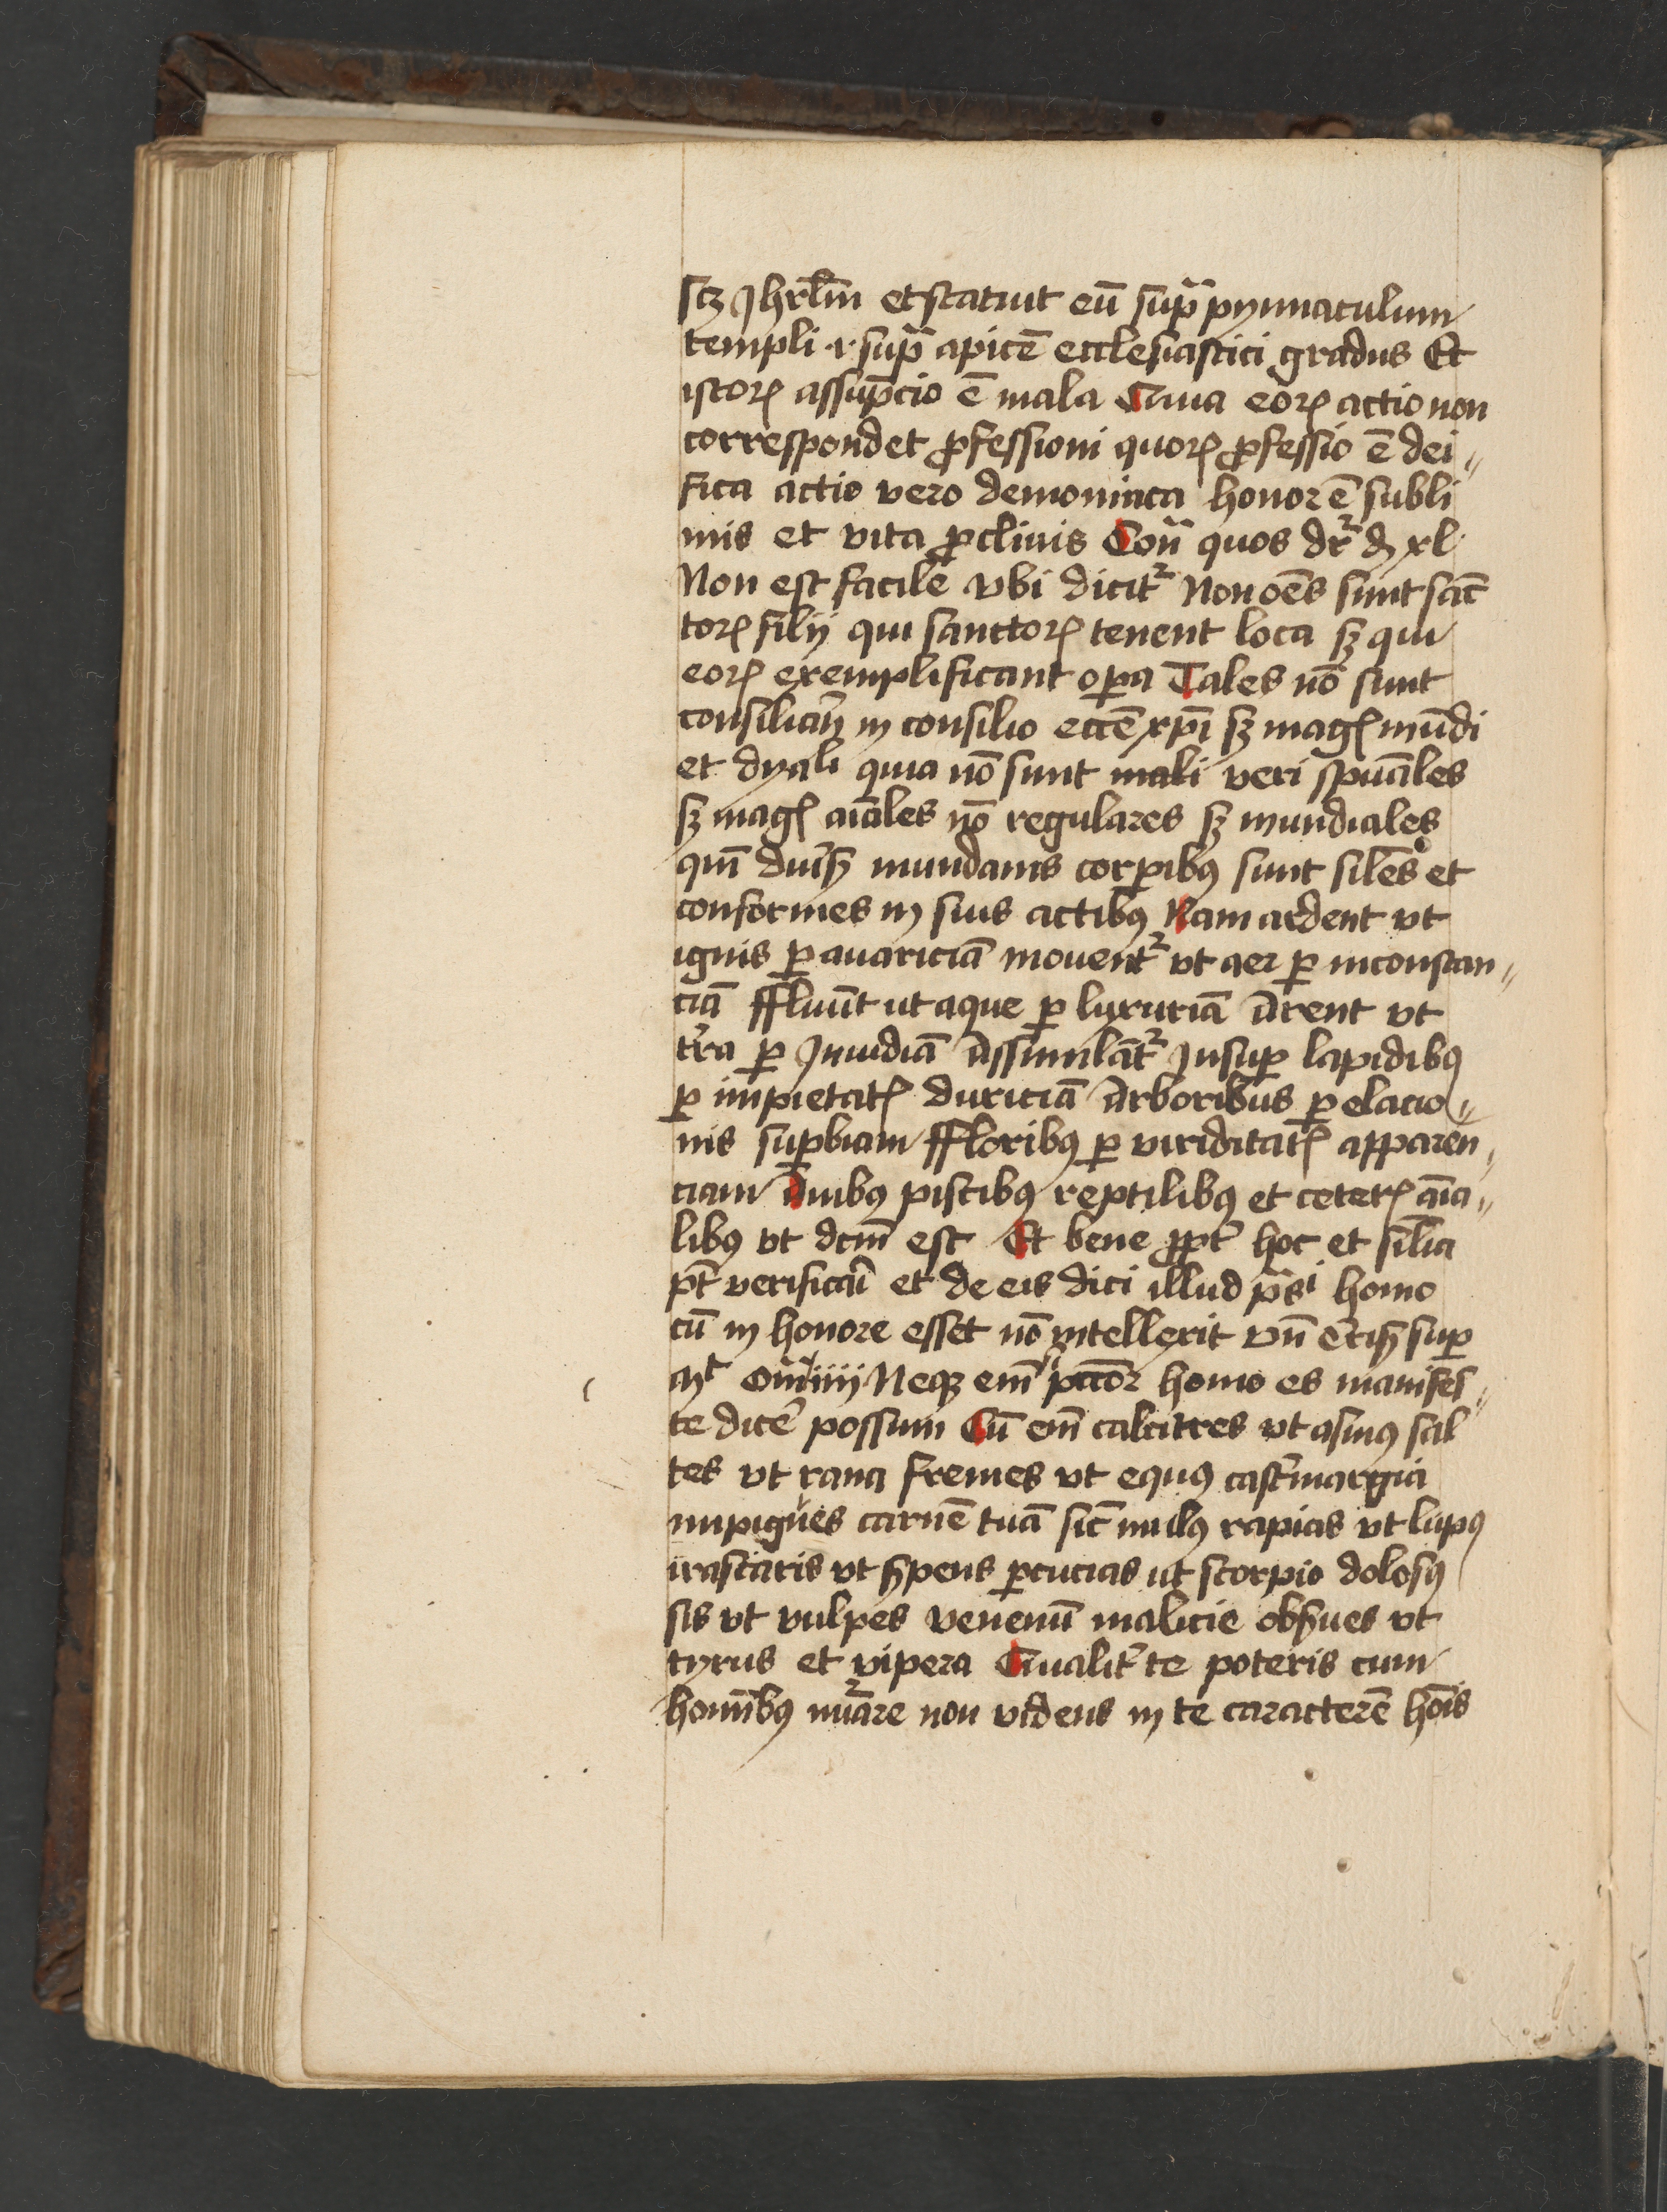 scꝫ Jhrl̄m et statuit eū sup̄ pynnaculum
templi .i. sup̄ apicē ecclesiastici gradus Et
istoꝝ assūpcio ē mala Quia eoꝝ actio non
correspondet ꝓfessioni quoꝝ ꝓfessio ē dei
fica actio vero demoniaca honor ē subli
mis et vita ꝓclivis Con̄ quos dr̄ xl
Non est facile vbi dicit᷑ Non oēs sunt sanc
toꝝ filij qui sanctoꝝ tenent loca sꝫ qui
eoꝝ exemplificant oꝑa Tales nō sunt
consiliarij in consilio eccē xp̄i sꝫ magꝭ mūdi
et dyali quia nō sunt mali veri spūales
sꝫ magꝭ aīales nō regulares sꝫ mundiales
qm̄ mundanis corꝑibꝰ sunt silēs et
conformes in suis actibꝰ Nam ardent vt
ignis ꝑ avariciā movent᷑ vt aer ꝑ inconstan
ciā ffluūt ut aque ꝑ luxuriā Arent vt
tr̄a ꝑ Jnuidiā Assimilāt᷑ Jnsuꝑ lapidibꝰ
ꝑ impietatꝭ duriciā Arboribus ꝑ elacio
nis suꝑbiam ffloribꝰ ꝑ viriditatꝭ apparen
ciam Auibꝰ piscibꝰ reptilibꝰ et ceterꝭ aīa
libꝰ vt dcm̄ est Et bene ꝓpt̄ hoc et silīa
pt̄ verificari et de eis dici illud ps̄i homo
cū in honore esset nō intellexit vn̄ Cris̄ suꝑ
mt om̄ iiij Neqꝫ em̄ homo es manifes
te dice᷑ possum Cū em̄ calcitres vt asinꝰ sal
tes vt rana fremes vt equꝰ cast̄margia
inpigues carnē tuā sic̄ mulꝰ rapias vt lupꝰ
irascaris vt s̄pens ꝑcucias ut scorpio dolosꝰ
sis vt vulpes venenū malicie obs̄ues vt
tyrus et vipera Qualit̄ te poteris cum
homībꝰ nūare non videns in te caracterē hoīs